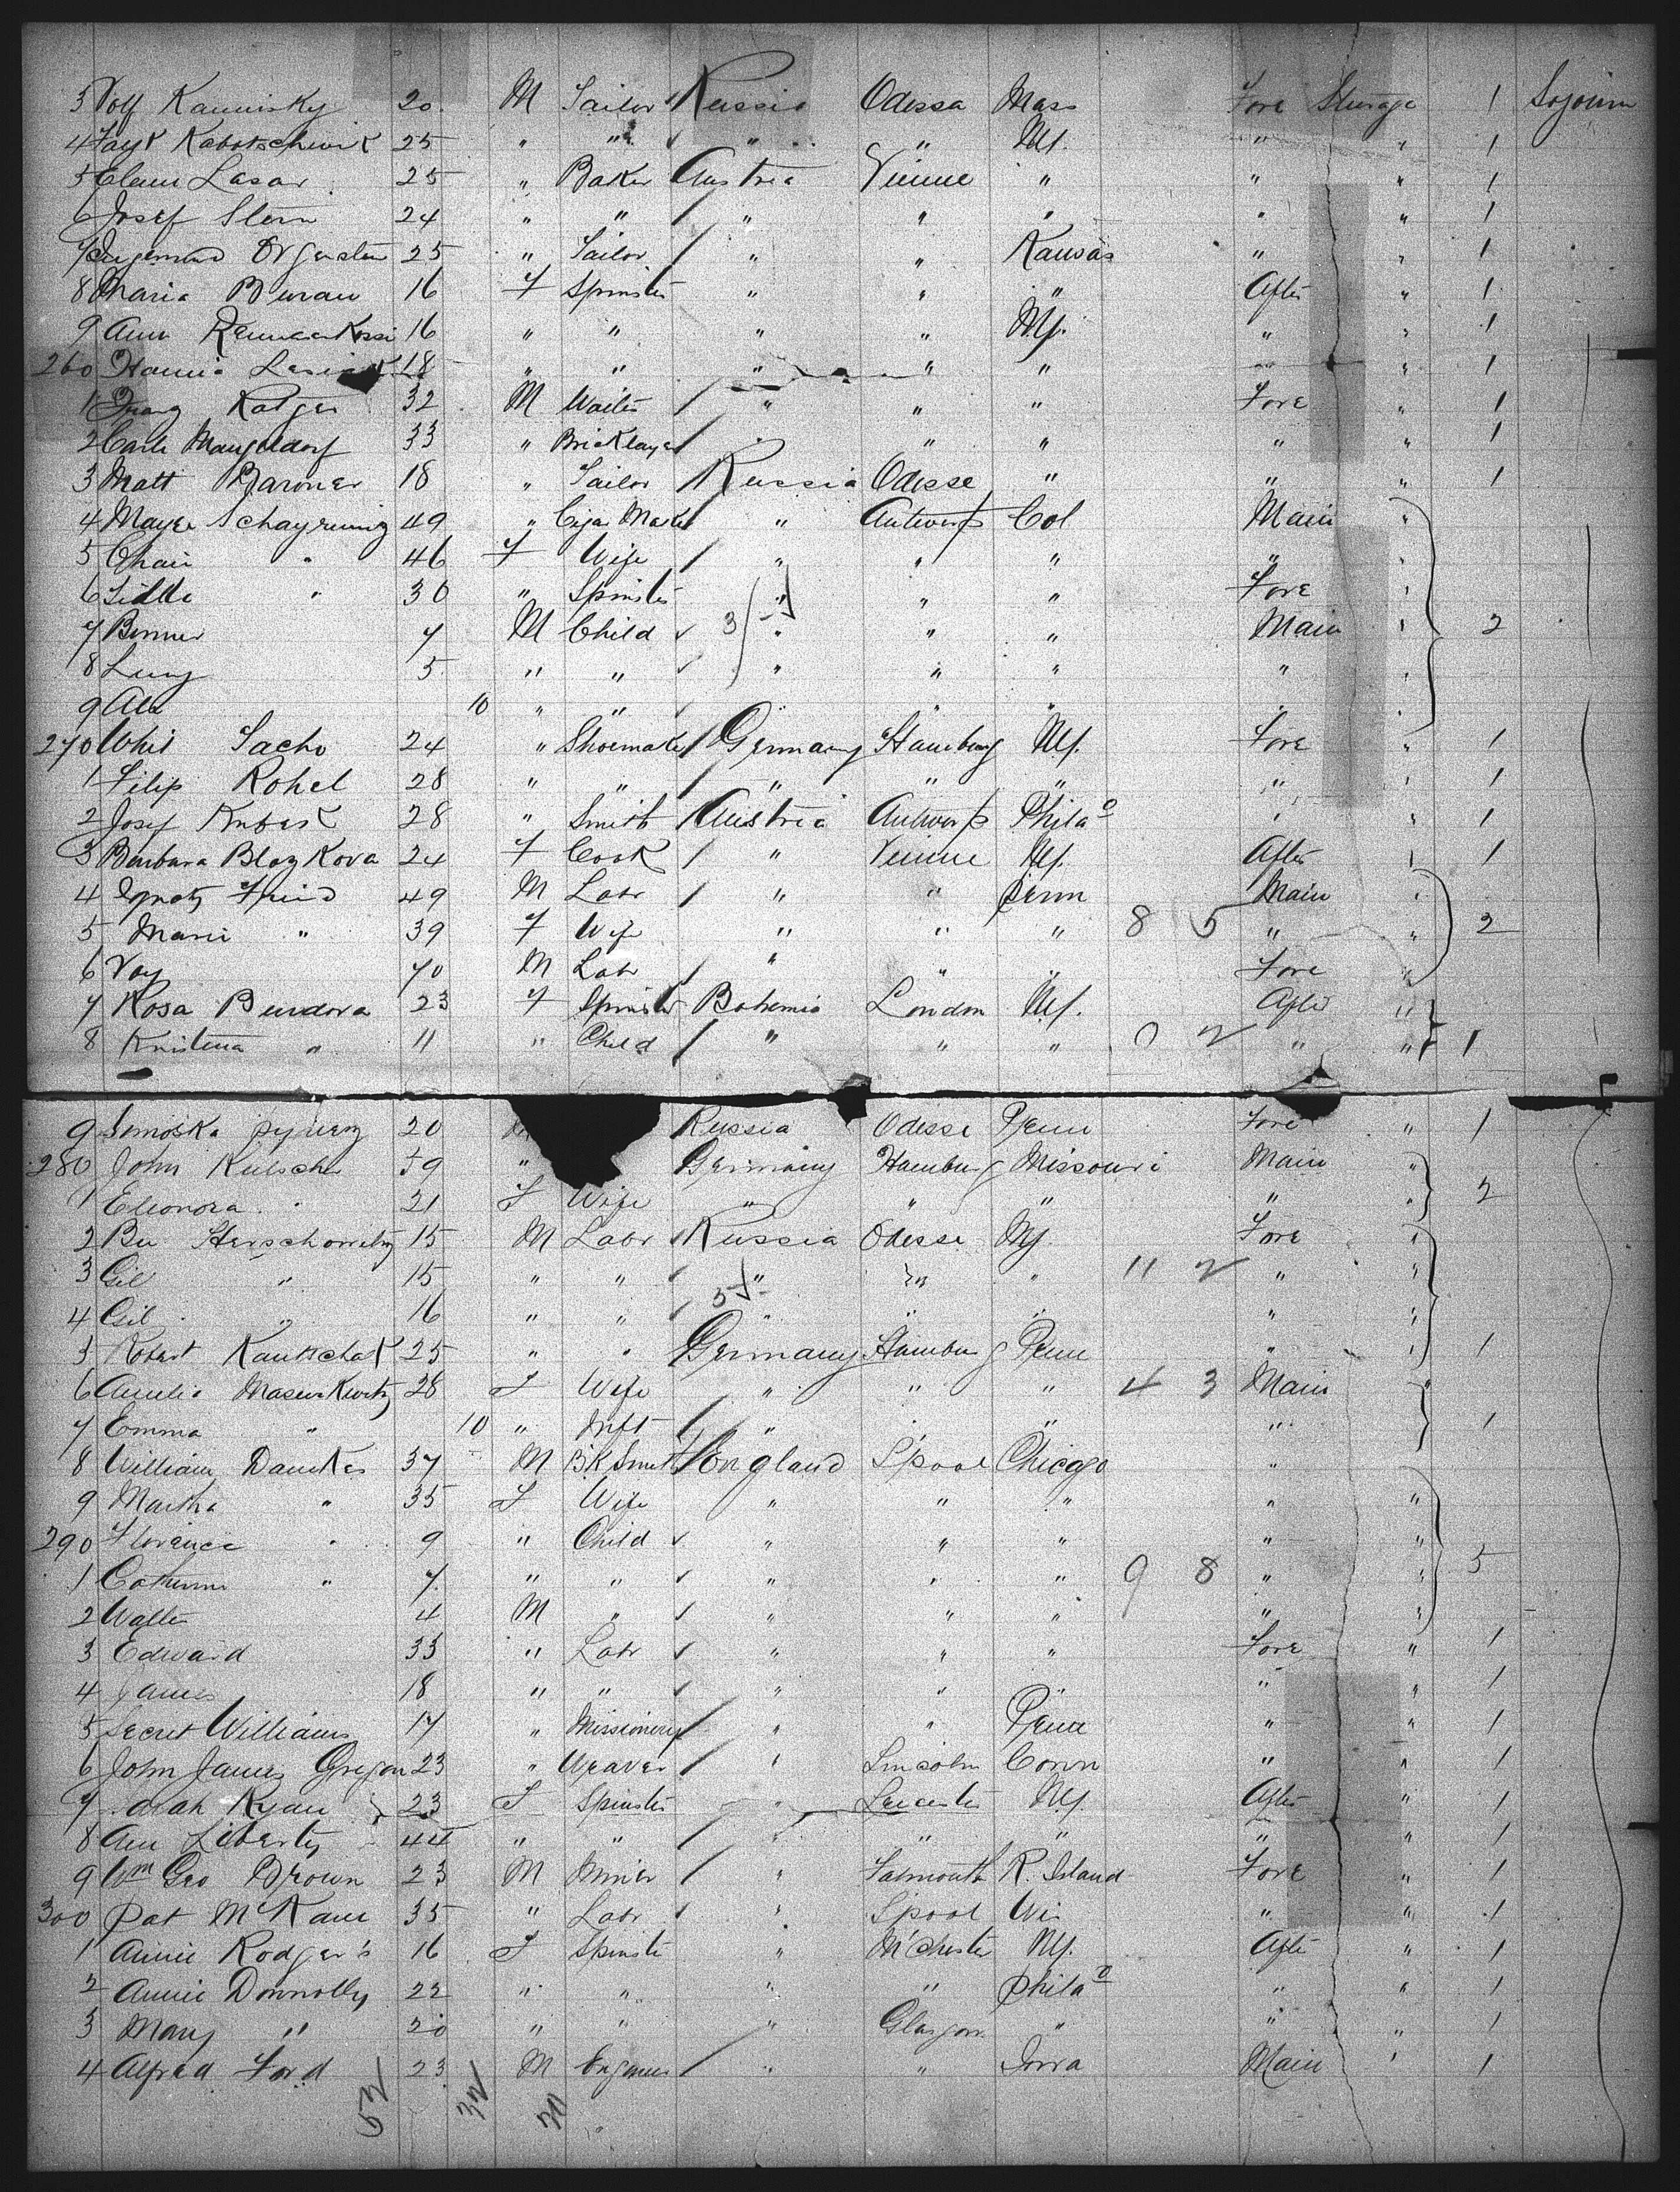 3 Volf Kaminsky 20 M Tailor Russia Odessa Mass Fore Sterage 1 Sojourn
4 Kabotschwik 25 " " " " NY. " " 1
5 Clem Lasar 25 " Baker Austria Vienne " " " 1
6 Josef Stern 24 " " " " " " " 1
7 25 " Tailor " " Kansas " " 1
8 Maria Buran 16 F Spinster " " " After " 1
9 Ann 16 " " " " NY. " " 1
260 Hannia 18 " " " " " " " 1
1 Franz Ratjes 32 M Waiter " " " Fore " 1
2 Carle 33 " Bricklayer " " " " " 1
3 Matt Baroner 18 " Tailor Russia Odesse " " " 1
4 Mayer 49 " Cigar Maker " Antwerp Col Main "
5 Chair " 46 F Wife " " " " "
6 Lidlle " 30 " Spinster " " " Fore "
7 Benner 7 M Child 3 " " " Main " 2
8 5 " " " " " " "
9 Alx 10 " " " " " " "
270 Tacho 24 " Shoemaker Germany Hamburg NY. Fore " 1
1 Filip Rohel 28 " " " " " " " 1
2 Josef Kubesk 28 " Smith Austria Antwerp Phila " " 1
3 Barbara Blazkova 24 F Cook " Vienne NY. After " 1
4 Ignatz 49 M Labr " " Penn Main "
5 Marie " 39 F Wife " " " 8 5 " " 2
6 Voy 70 M Labr " " " Fore "
7 Rosa Bendova 23 F Spinster Bohemia London NY. After "
8 Kristena " 11 " Child " " " 0 2 " " 1
9 Simoska 20 Russia Odesse Penn Fore " 1
280 John Kielsche 59 " Germany Hamburg Missouri Main "
1 Eleonora " 21 F Wife " " " " " 2
2 Ber Herschowitz 15 M Labr Russia Odesse NY. Fore "
3 Gil " 15 " " " " " 11 2 " "
4 Gil " 16 " " 5 " " " " "
5 Robert Kautschak 25 " " Germany Hamburg Penn " " 1
6 Amelie 28 F Wife " " " 4 3 Main "
7 Emma " 10 " Inft " " " " " 1
8 William Dankes 37 M Bk Smith England L'pool Chicago "
9 Martha " 35 F Wife " " " " "
290 Florence " 9 " Child " " " " "
1 Catherine " 7 " " " " " 9 8 " " 5
2 Walter 4 M " " " " " "
3 Edward 33 " Labr " " " Fore " 1
4 James 18 " " " " " " " 1
5 Secret Williams 17 " Missionery " " Penn " " 1
6 John James Gregon 23 " Weaver " Lincoln Conn " " 1
7 arah Ryan 23 F Spinster " Leicester NY. After " 1
8 Ann Liberty 44 " " " " " " " 1
9 Wm Geo Brown 23 M Miner " Falmouth R. Island Fore " 1
300 Pat McKane 35 " Labr " L'pool Wi " " 1
1 Annie Rodger's 16 F Spinster " M'chester NY. After " 1
2 Annie Donnolly 22 " " " " Phila " " 1
3 Mary " 20 " " " Glasgow " " " 1
4 Alfred Ford 23 M Engineer " " Iowa Main " 1
52 32 20